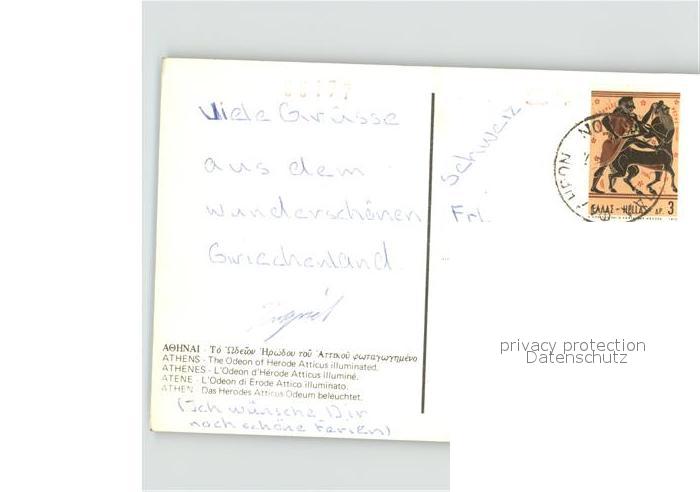 00177
Viele Grüsse
aus dem
wunderschönen
Griechenland
ΑΘΗΝΑΙ - Τὸ Ὠδεῖον Ἡρώδου τοῦ Ἀττικοῦ φωταγωγημένο
ATHENS - The Odeon of Herode Atticus illuminated.
ATHENES - L'Odeon d'Hérode Atticus Illuminé.
ATENE - L'Odeon di Erode Attico illuminato.
ATHEN - Das Herodes Atticus Odeum beleuchtet.
(Ich wünsche Dir
noch schöne Ferien)
Schweiz
Frl.
ΕΛΛΑΣ - HELLAS ΔΡ. 3
privacy protection
Datenschutz